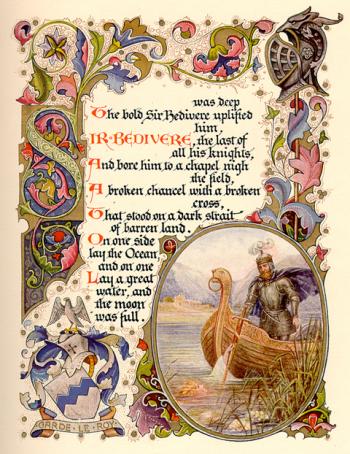 was deep
The bold Sir Bedivere uplifted
him,
SIR·BEDIVERE, the last of
all his knights,
And bore him to a chapel nigh
the field,
A broken chancel with a broken
cross,
That stood on a dark strait
of barren land.
On one side
lay the Ocean,
and on one
Lay a great
water, and
the moon
was full.
GARDE·LE·ROY